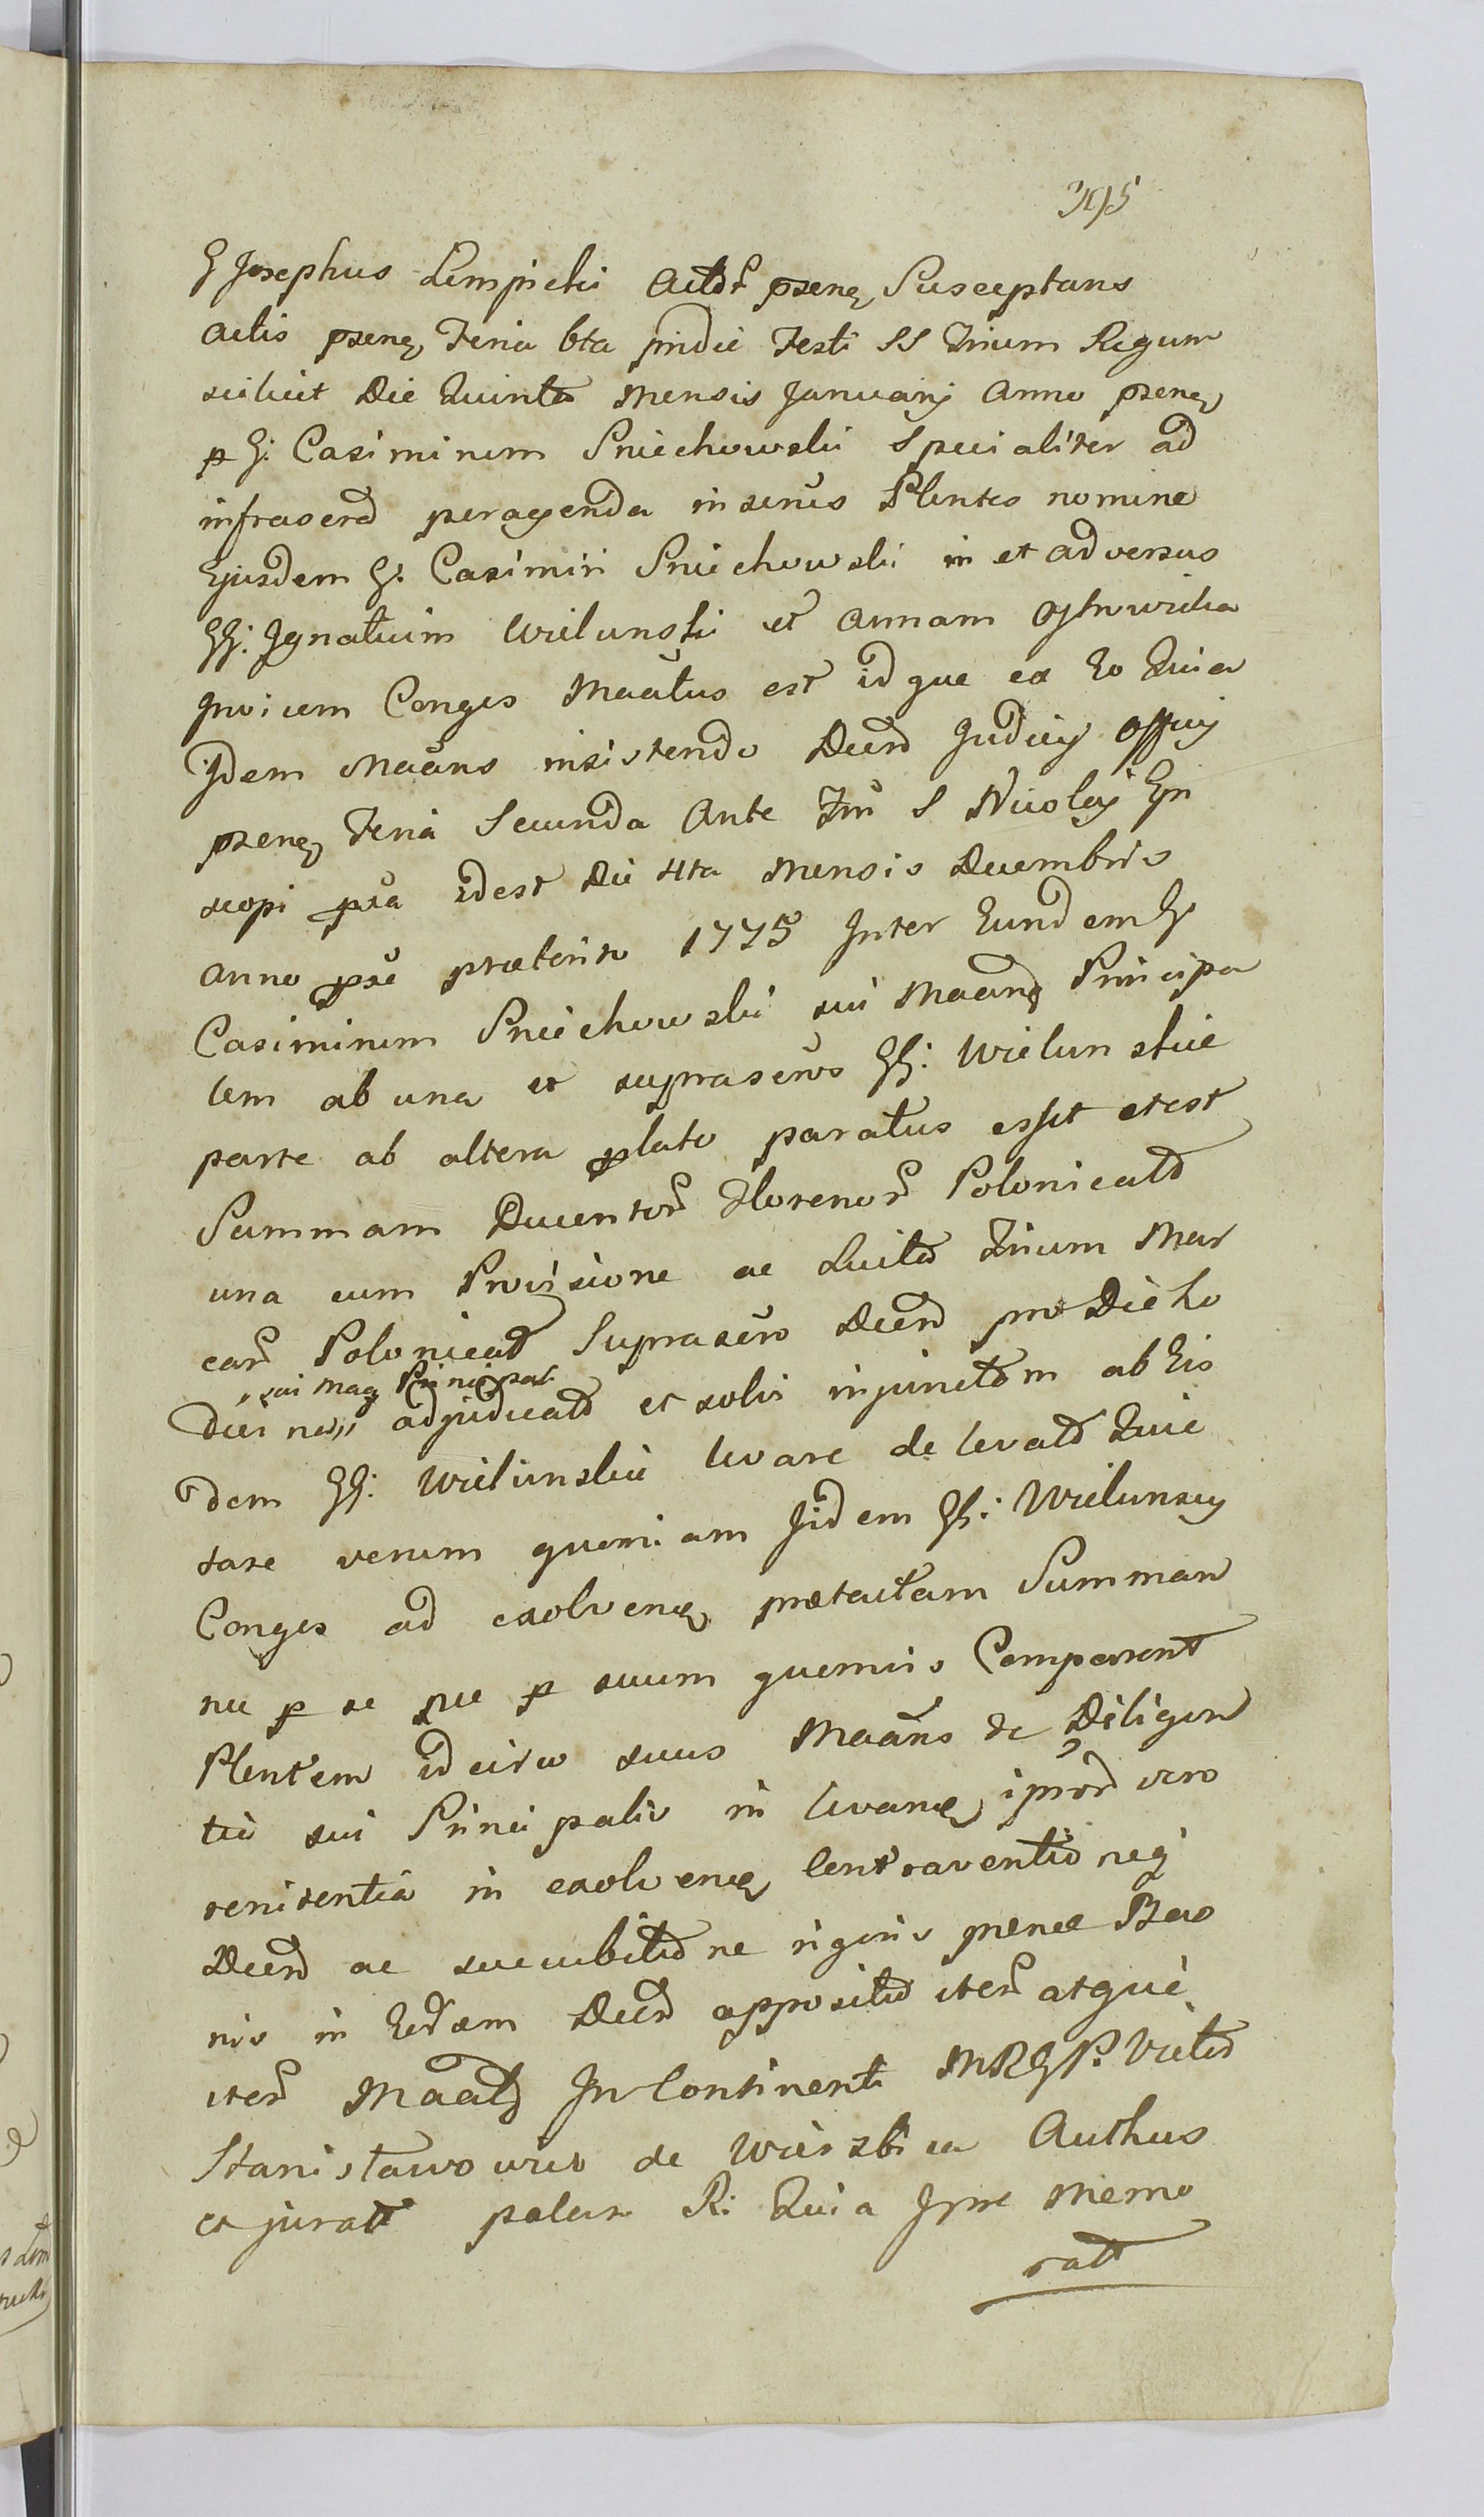 395
G Josephus Lempicki Actor psene Susceptans
Actis psene Feria 6ta pridie Festi SS Trium Regum
scilicet Die Quinta Mensis Januarij Anno psene
p G: Casimirum Sniechowski Specialiter ad
infrascrd peragenda inscrius Plentes nomine
Ejusdem G. Casimiri Sniechowski in et adversus
GG: Ignatium Wielunski et Annam
Invicem Conges Maatus est idque ex Eo Quia
Idem Maans insistendo Decrd Judicij Officij
psene Feria Secunda Ante Fm S Nicolaj Epi
scopi pxa idest Die 4ta Mensis Decembris
Anno pxe praeterito 1775 Inter Eundem G
Casimirum Sniechowski sui Maang Principa
lem ab una et suprascros GG: Wielunskie
parte ab altera plato paratus esset etest
Summam Ducentor Florenor Polonicald
una cum Provisione ac Luita Trium Mar
car Polonicad Suprascro Decrd pro Dicto
sui Mag Principal
adjudicatd et solvi injunctam ab Eis
dem GG: Wielunskie levare de levatd Quie
tare verum quoniam Iidem GG: Wielunscy
Conges ad exolvene praetactam Summam
nec p se nec p suum quemvis Comparent
Plentem idcirco suus Maans de Diligen
tia sui Principalis in levane ipsor vero
renitentia in exolvene Contraventio neq
Decrd ac succubitione rigoris paenae Ban
nis in Eodem Decrd apposita iter atque
iter Maatq In Continenti MRGP. Victus
Stanisławowicz de Wierzbica Authus
et juratt palam R: Quia Ipse Memo
ratt